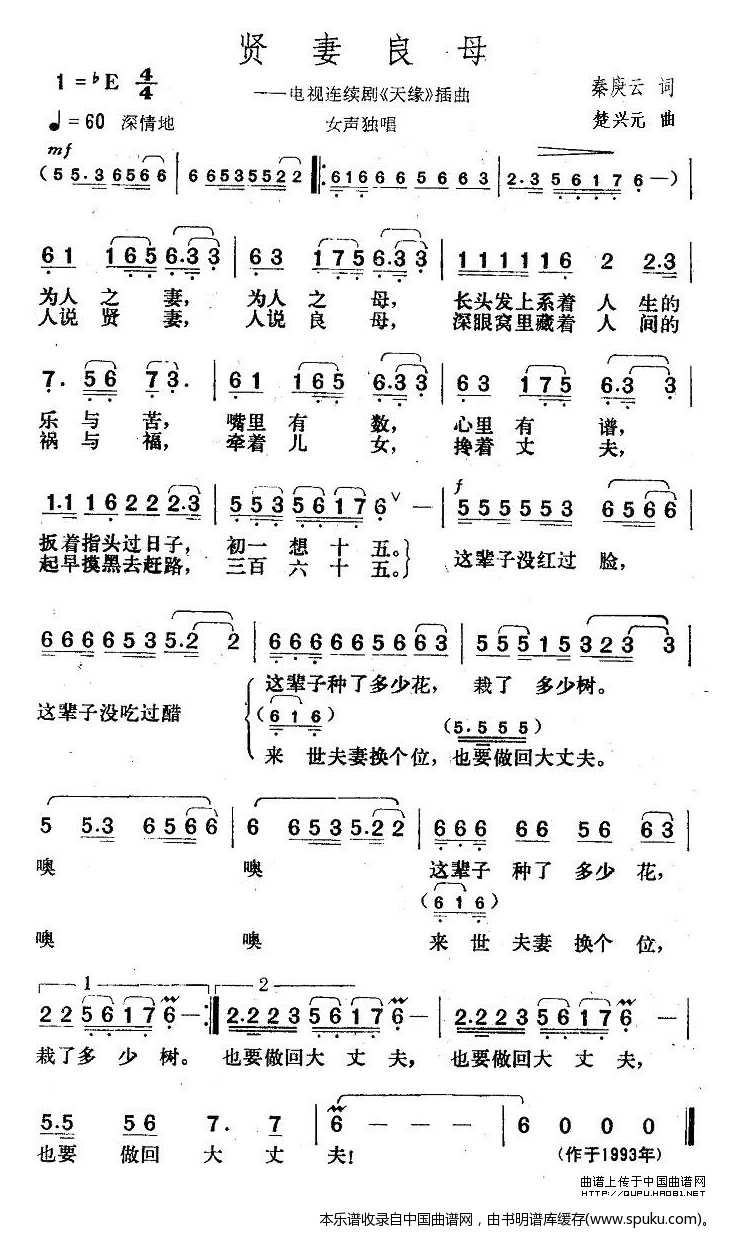 贤妻良母
1=♭E 4/4
——电视连续剧《天缘》插曲
秦庚云 词
♩=60 深情地
女声独唱
楚兴元 曲
mf
(55.36566 | 6653552 2 |: 61666656663 | 2.3 5617 6 —) |
61 165 6.33 | 63 175 6.33 | 111116 2 2.3 |
为人之妻, 为人之母, 长头发上系着人生的
人说贤妻, 人说良母, 深眼窝里藏着人间的
7. 56 73. | 61 165 6.33 | 63 175 6.3 3 |
乐与苦, 嘴里有数, 心里有谱,
祸与福, 牵着儿女, 搀着丈夫,
1.1 16 22 2.3 | 553 5617 6 ∨ — | f 555553 6566 |
扳着指头过日子, 初一想十五。} 这辈子没红过脸,
起早摸黑去赶路, 三百六十五。
666653 5.2 2 | 66666 5663 | 555153 23 3 |
这辈子种了多少花, 栽了多少树。
这辈子没吃过醋
(616) (5.555)
来世夫妻换个位, 也要做回大丈夫。
5 5.3 6566 | 6 653 5.22 | 666 66 56 63 |
噢 噢 这辈子种了多少花,
(616)
噢 噢 来世夫妻换个位,
1 2
22 5617 6 — :| 2.223 5617 6 — | 2.223 5617 6 — |
栽了多少树。也要做回大丈夫, 也要做回大丈夫,
5.5 56 7. 7 | 6 — — — | 6 0 0 0 ‖
也要做回大丈夫! (作于1993年)
曲谱上传于中国曲谱网
HTTP://QUPU.HAO81.NET
本乐谱收录自中国曲谱网，由书明谱库缓存(www.spuku.com)。